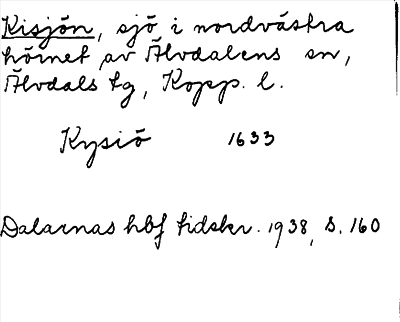 Kisjön, sjö i nordvästra
hörnet av Älvdalens sn,
Älvdals tg, Kopp. l.
Kysiö 1633
Dalarnas hbf tidskr. 1938, s. 160